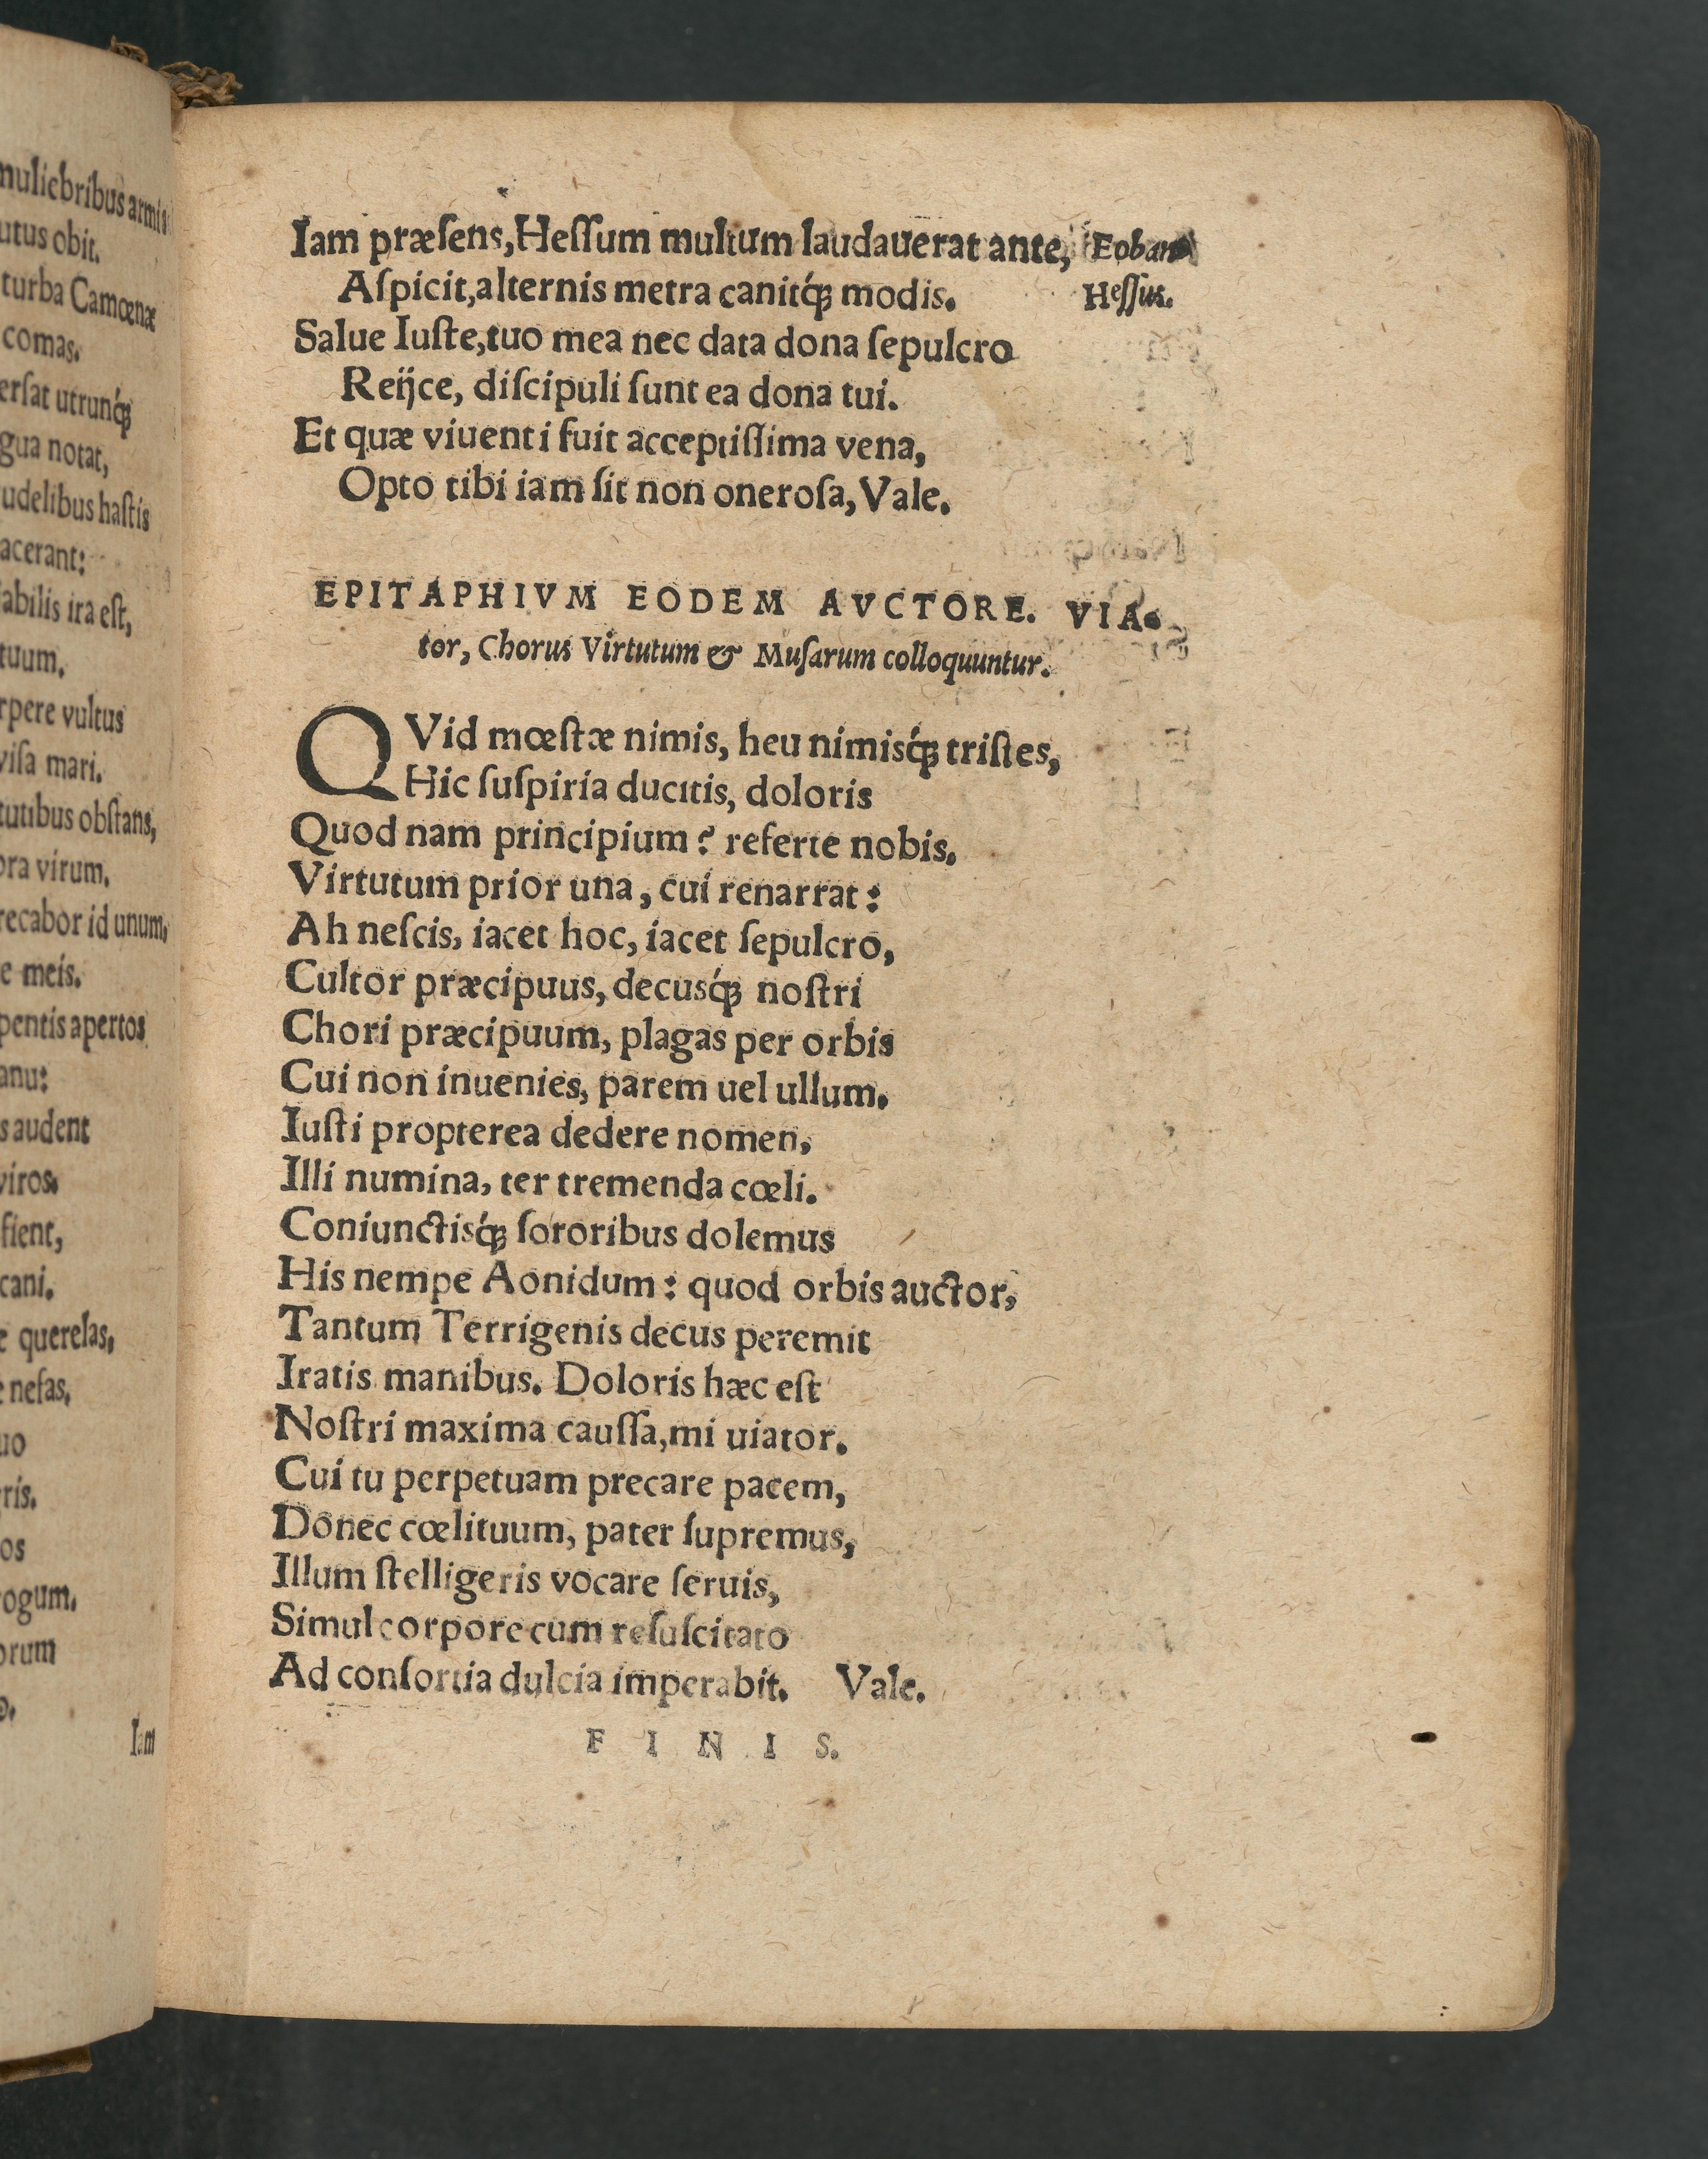 muliebribus armis
utus obit.
turba Camœnæ
comas.
ersat utrunq́ꝫ
gua notat,
udelibus haſtis
acerant:
abilis ira eſt,
tuum.
rpere vultus
viſa mari.
tutibus obſtans,
ora virum.
recabor id unum,
e meis.
pentis apertos
anu:
s audent
viros.
fient,
cani.
e querelas,
e nefas.
uo
ris.
os
ogum.
orum
o.
Iam
Iam præſens, Heſſum multum laudauerat ante, Eoban
Aſpicit, alternis metra canitq́ꝫ modis. Heſſus.
Salue Iuſte, tuo mea nec data dona ſepulcro
Reijce, diſcipuli ſunt ea dona tui.
Et quæ viuenti fuit acceptiſſima vena,
Opto tibi iam ſit non oneroſa, Vale.
EPITAPHIVM EODEM AVCTORE. VIA-
tor, Chorus Virtutum & Muſarum colloquuntur.
QVid mœſtæ nimis, heu nimisq́ꝫ triſtes,
Hic ſuſpiria ducitis, doloris
Quod nam principium? referte nobis.
Virtutum prior una, cui renarrat:
Ah neſcis, iacet hoc, iacet ſepulcro,
Cultor præcipuus, decusq́ꝫ noſtri
Chori præcipuum, plagas per orbis
Cui non inuenies, parem uel ullum.
Iuſti propterea dedere nomen,
Illi numina, ter tremenda cœli.
Coniunctisq́ꝫ ſororibus dolemus
His nempe Aonidum: quod orbis auctor,
Tantum Terrigenis decus peremit
Iratis manibus. Doloris hæc eſt
Noſtri maxima cauſſa, mi uiator.
Cui tu perpetuam precare pacem,
Donec cœlituum, pater ſupremus,
Illum ſtelligeris vocare ſeruis,
Simul corpore cum reſuſcitato
Ad conſortia dulcia imperabit. Vale.
F I N I S.